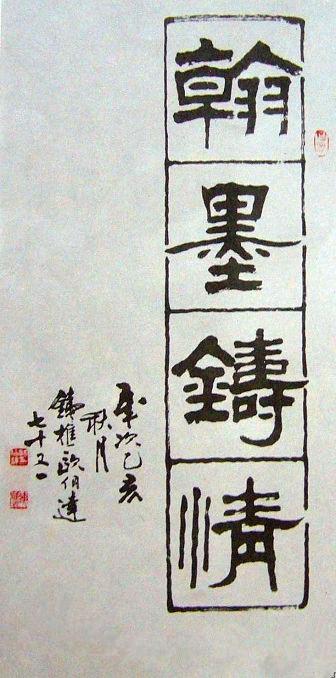 翰墨鑄情
歲次乙亥
秋月
鑄樵歐伯達
七十又一